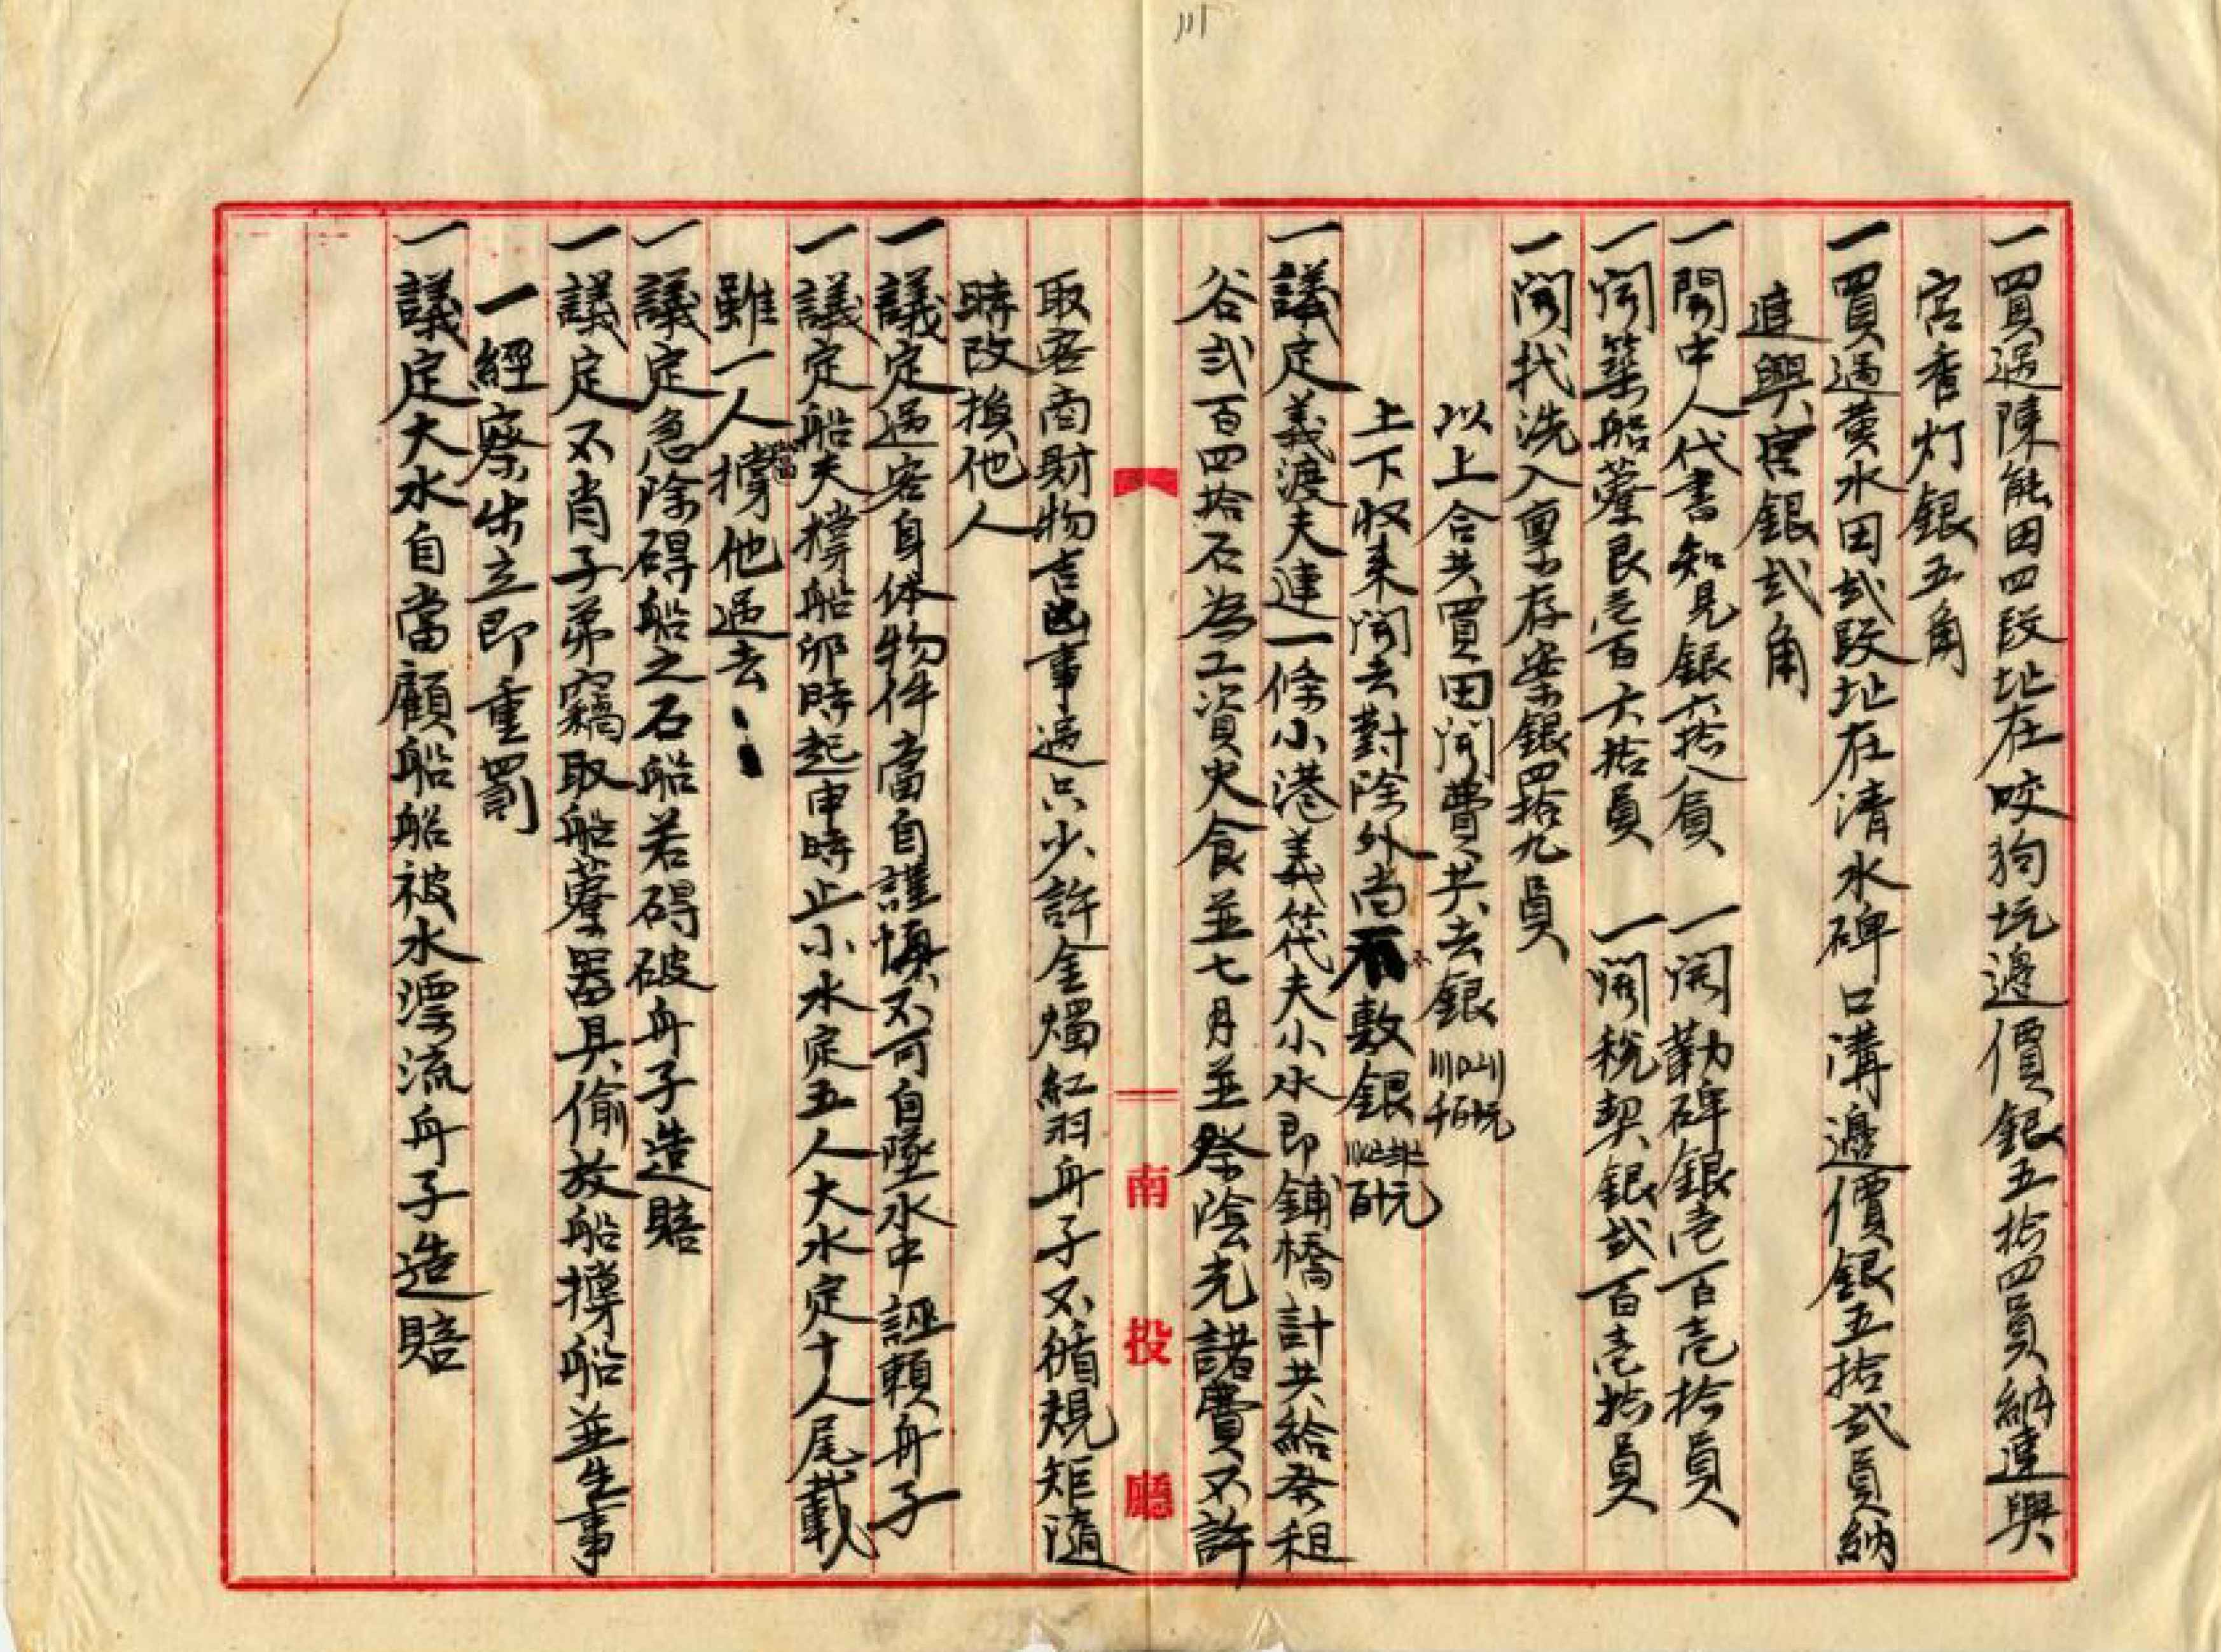 〣
一買過陳能田四段址在咬狗坑邊價銀五拾四員納連興
宮香灯銀五角
一買過黄水田弍段址在清水碑口溝邊價銀五拾弍員納
連興宮銀弍角
一開中人代書知見銀六拾八員　一開勒碑銀壱百壱拾員
一開築船藔艮壱百六拾員　一開税契銀弍百壱拾員
一開找洗入稟存案銀四拾九員
以上合共買田開費共去銀
上下収来開去對除外尚不敷銀
一議定義渡夫連一條小港義筏夫小水即鋪橋計共給租
谷弍百四拾石為工資火食並七月並祭陰光諸費不許
取客商財物吉凶事過只少許金燭紅羽舟子不循規矩隨
時改換他人
一議定過客身体物件當自謹慎不可自墜水中誣賴舟子
一議定船夫撐船卯時起申時止小水定五人大水定十人尾載
雖一人當撐他過去
一議定急除碍船之石船若碍破舟子造賠
一議定不肖子弟竊取船藔器具偷放船撐船並生事
一經察出立即重罰
一議定大水自當顧船船被水漂流舟子造賠
南投廳